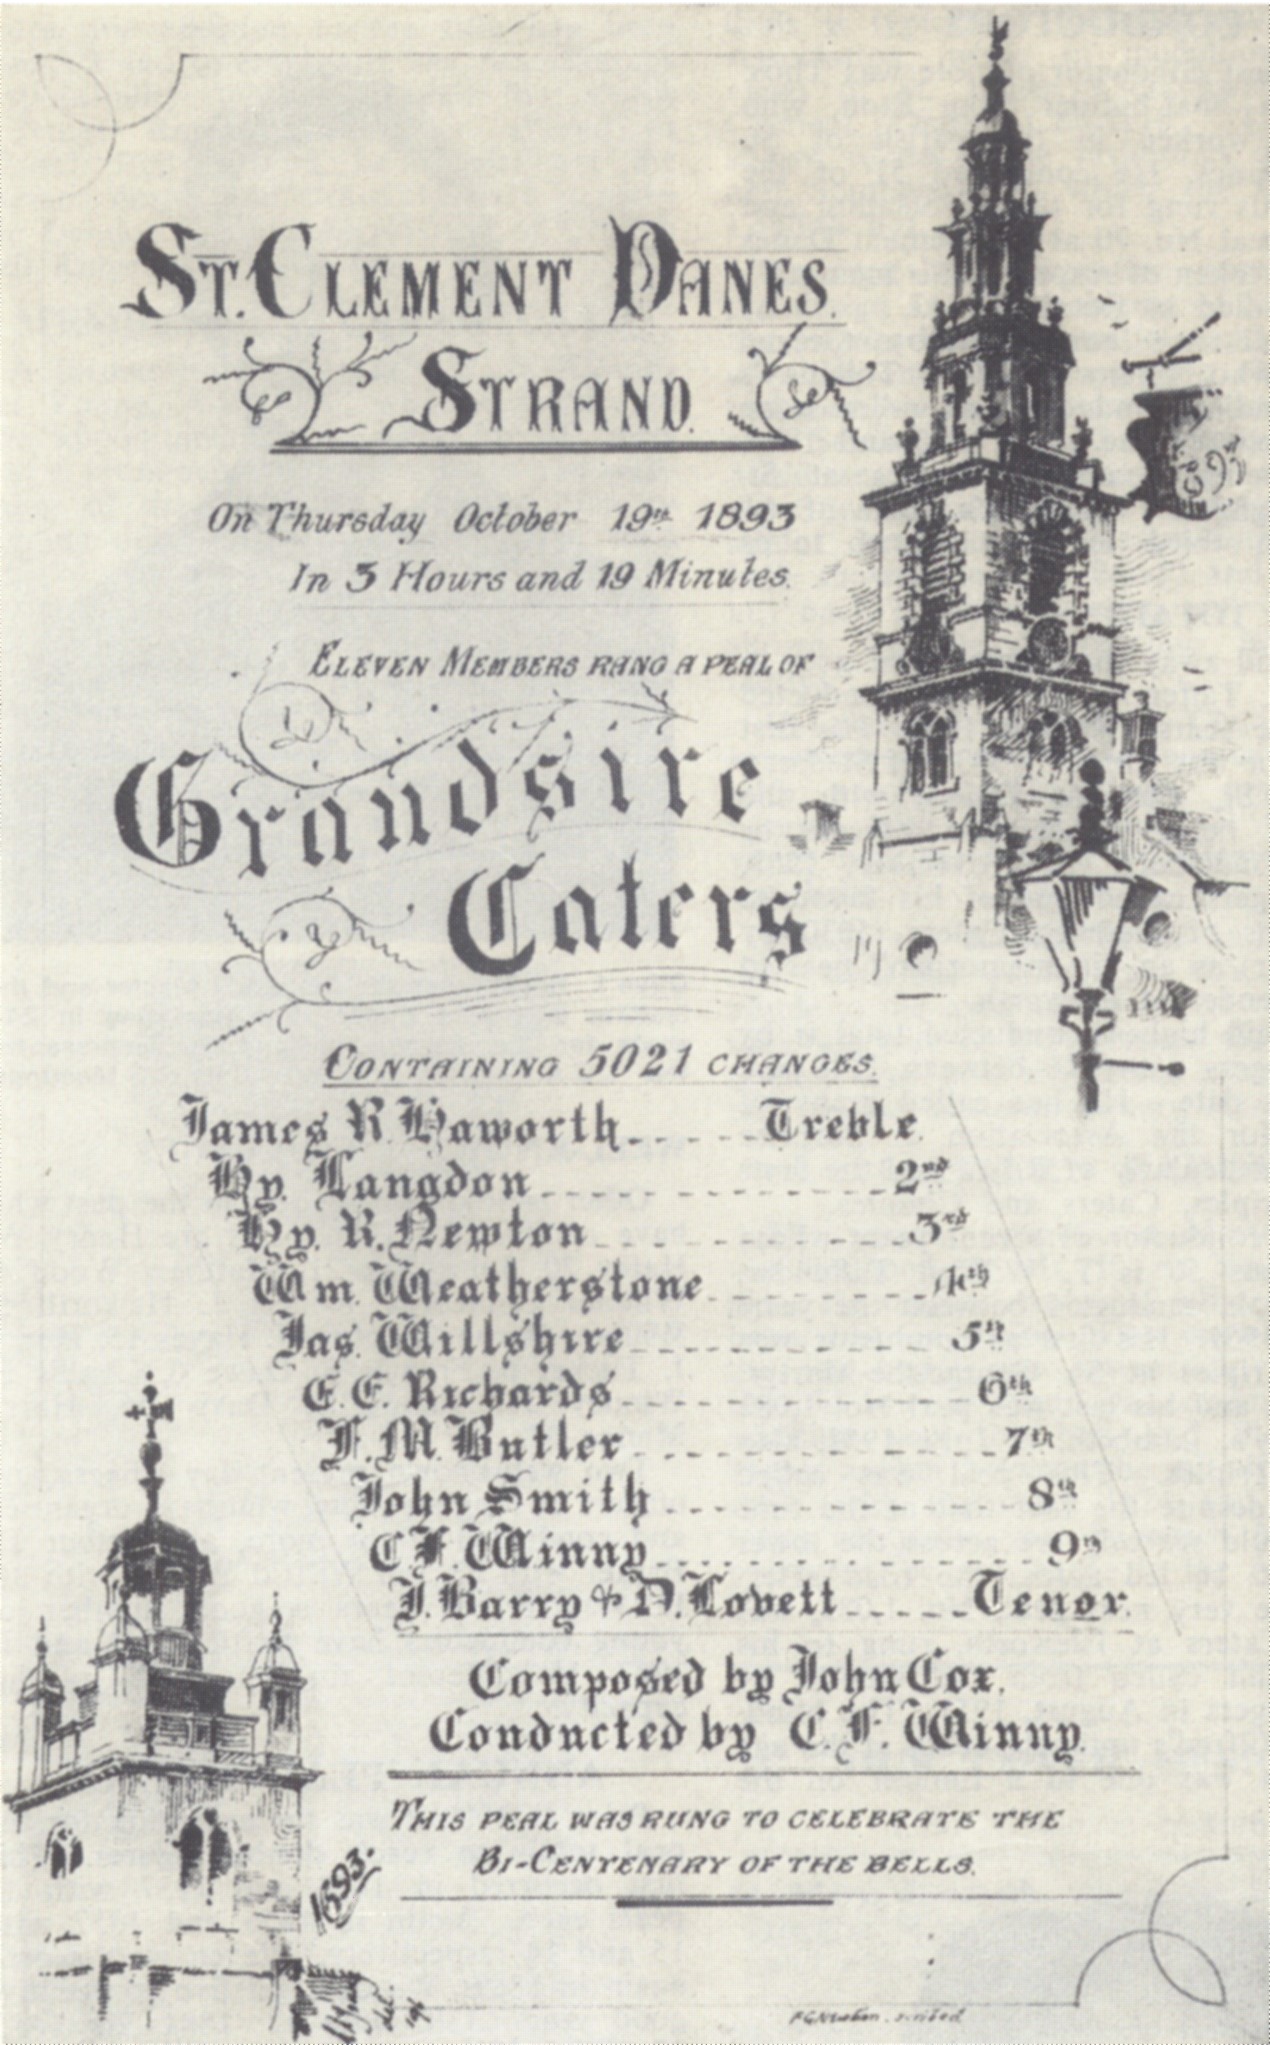 ST. CLEMENT DANES.
STRAND.
On Thursday October 19th 1893
In 3 Hours and 19 Minutes.
ELEVEN MEMBERS RANG A PEAL OF
Grandsire
Caters
CONTAINING 5021 CHANGES.
James R. Haworth......Treble.
Hy. Langdon..............2nd
Hy. R. Newton..............3rd
Wm. Weatherstone..........4th
Jas. Willshire..............5th
E. E. Richards..............6th
F. M. Butler..............7th
John Smith..............8th
C. F. Winny..............9th
J. Barry & D. Lovett.....Tenor.
Composed by John Cox.
Conducted by C. F. Winny.
THIS PEAL WAS RUNG TO CELEBRATE THE
BI-CENTENARY OF THE BELLS.
1893
1693.